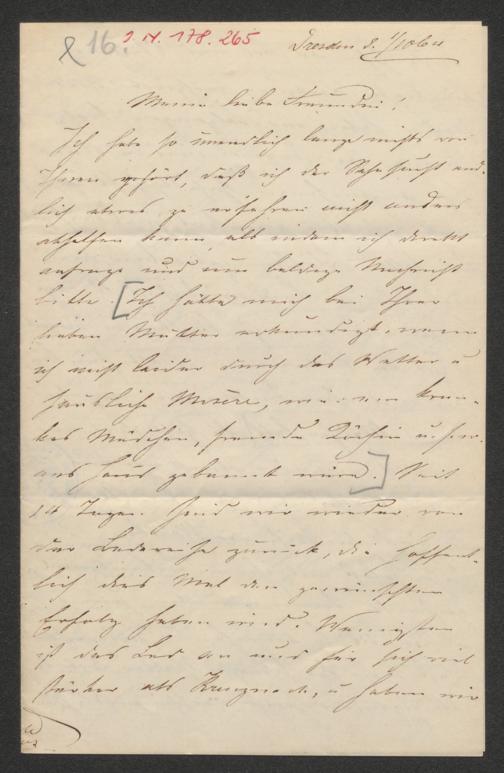 16.
I. N. 178.265
Dresden d. 1/10 64
Meine liebe Freundin!
Ich habe so unendlich lange nichts von
Ihnen gehört, daß ich der Sehnsucht end-
lich etwas zu erfahren nicht anders
abhelfen kann, als indem ich direkt
anfrage und um baldige Nachricht
bitte. [Ich hätte mich bei Ihrer
lieben Mutter erkundigt, wenn
ich nicht leider durch das Wetter u
häusliche Misère, wie: ein kran-
kes Mädchen, fremde Köchin u.s.w.
ans Haus gebannt wäre.] Seit
14 Tagen sind wir wieder von
der Badereise zurück, die hoffent-
lich dies Mal den gewünschten
Erfolg haben wird. Wenigstens
ist das Bad an und für sich viel
stärker als Kreuznach, u haben wir